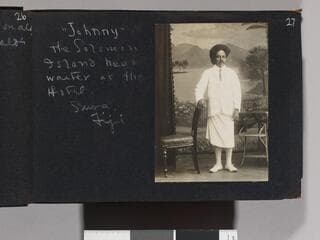 26
27
"Johnny"
the Solomon
Island head
waiter at the
Hotel.
Suva.
Fiji